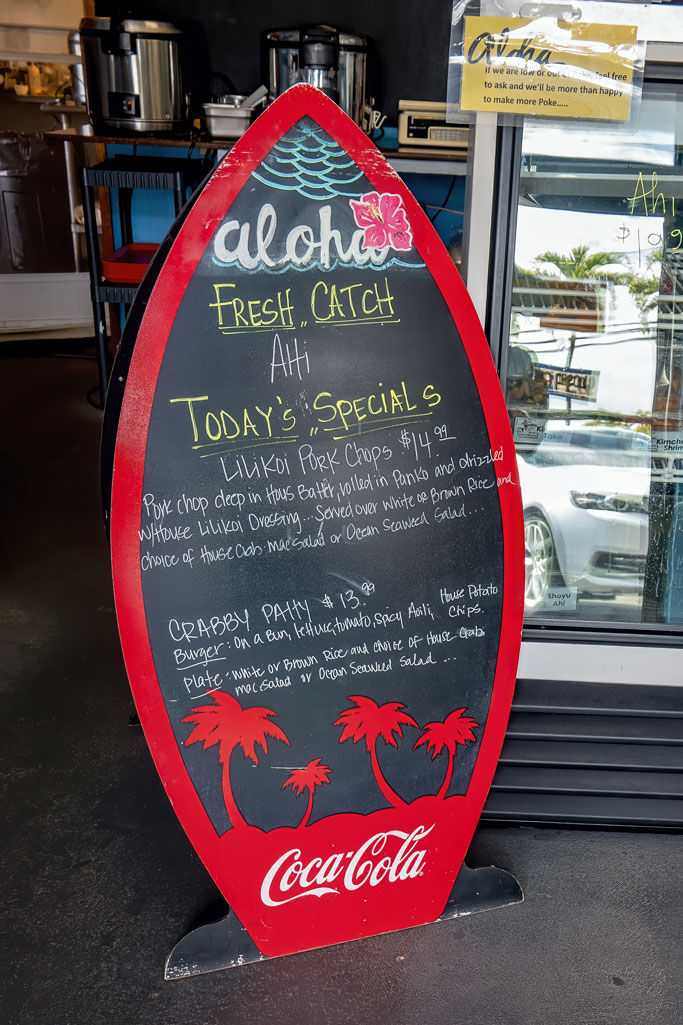 Aloha
If we are low or out of Poke, feel free
to ask and we'll be more than happy
to make more Poke.....
aloha
FRESH CATCH
AHi
TODAY'S SPECIALS
LiLiKOi PORK CHOPS $14.99
Pork chop deep in Haus Batter, rolled in Panko and drizzled
w/House LiLiKOi Dressing... Served over White or Brown Rice and
choice of House Crab-mac Salad or Ocean Seaweed Salad...
CRABBY PATTY $13.99
Burger: On a Bun, lettuce, tomato, Spicy Aoili, House Potato
Chips.
Plate: White or Brown Rice and choice of House Crab
mac Salad or Ocean Seaweed Salad...
Coca-Cola
Ahi
Tako
Kimchee
Shoyu
Ahi